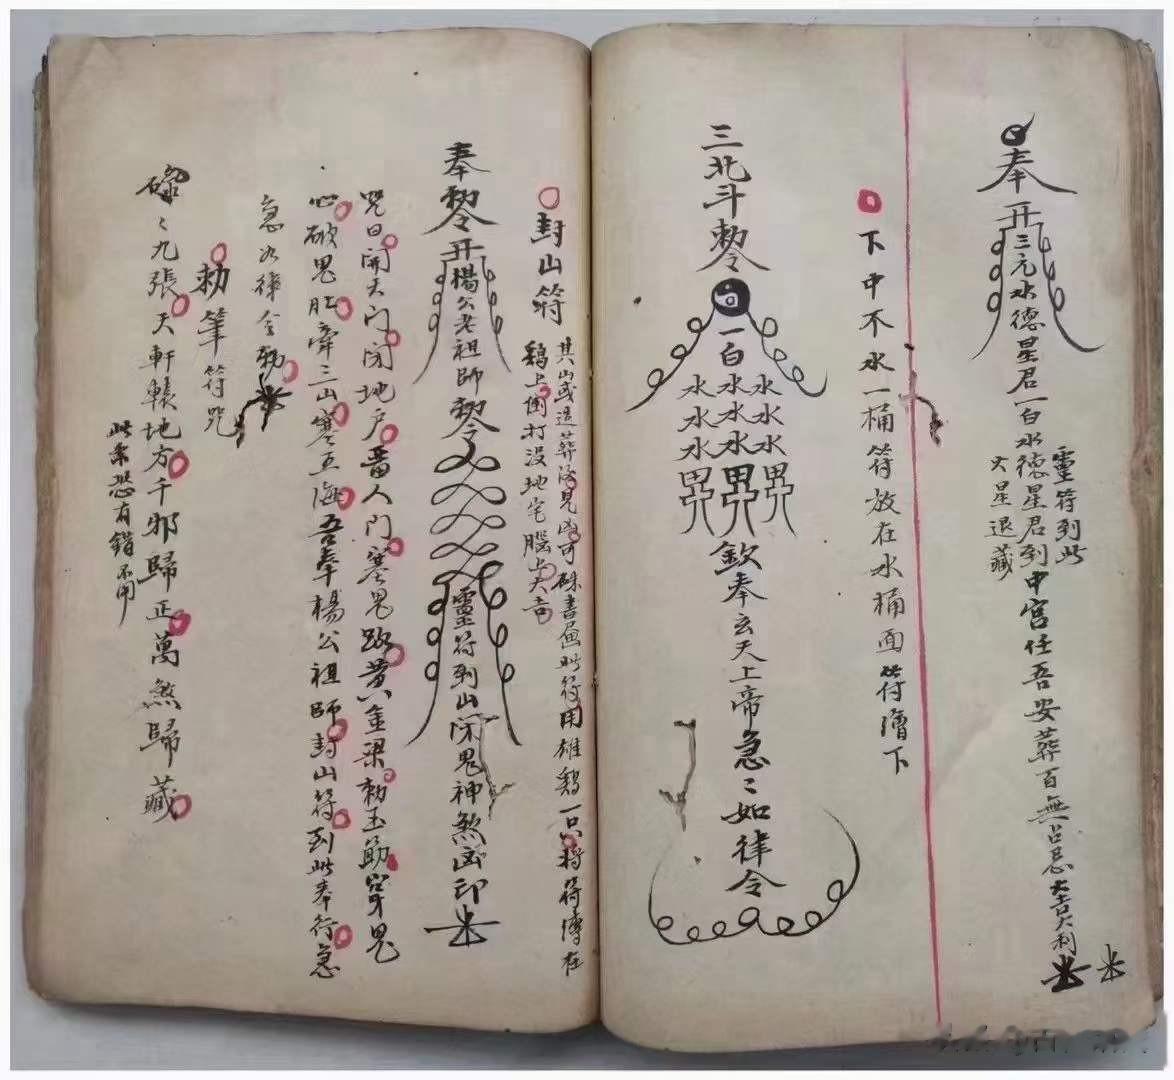 奉
开三元水德星君一白水德星君到中宮任吾安葬百無占忌大吉大利
靈符到此
火星退藏
下中不水一桶符放在水桶面符漕下
三北斗勅令
一白
水水水
水水水
水水水
欽奉玄天上帝急〻如律令
封山符
其山或造葬後見凶可硃書畫此符用雄鷄一只將符傳在
鷄上倒打没地宅腦上大吉
奉勅令开楊公老祖師勅令
靈符到山闭鬼神煞凶印
咒曰開天门闭地户畨人门塞鬼路黄八金梁勅玉筋穿鬼
心破鬼肚牽三山塞五海吾奉楊公祖師封山符到此奉行急
急如律令勅
勅筆符咒
〻九張天軒轅地方千邪歸正萬煞歸藏
此条恐有錯不用